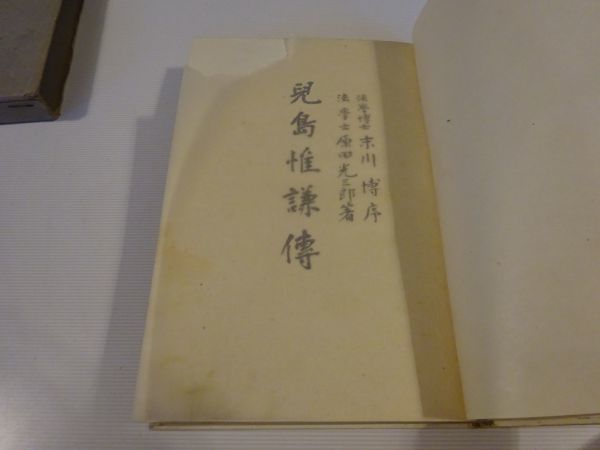 法學博士 末川博序
法學士 原田光三郎著
兒島惟謙傳